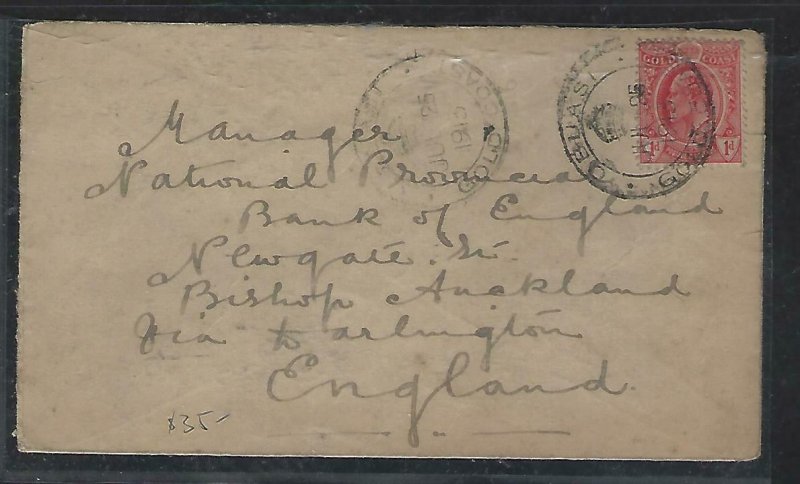 GOLD COAST
1d
OBUASI
GOLD
COAST
GOLD
Manager
National Provincial
Bank of England
Newgate St.
Bishop Auckland
Via Darlington
England
$35-